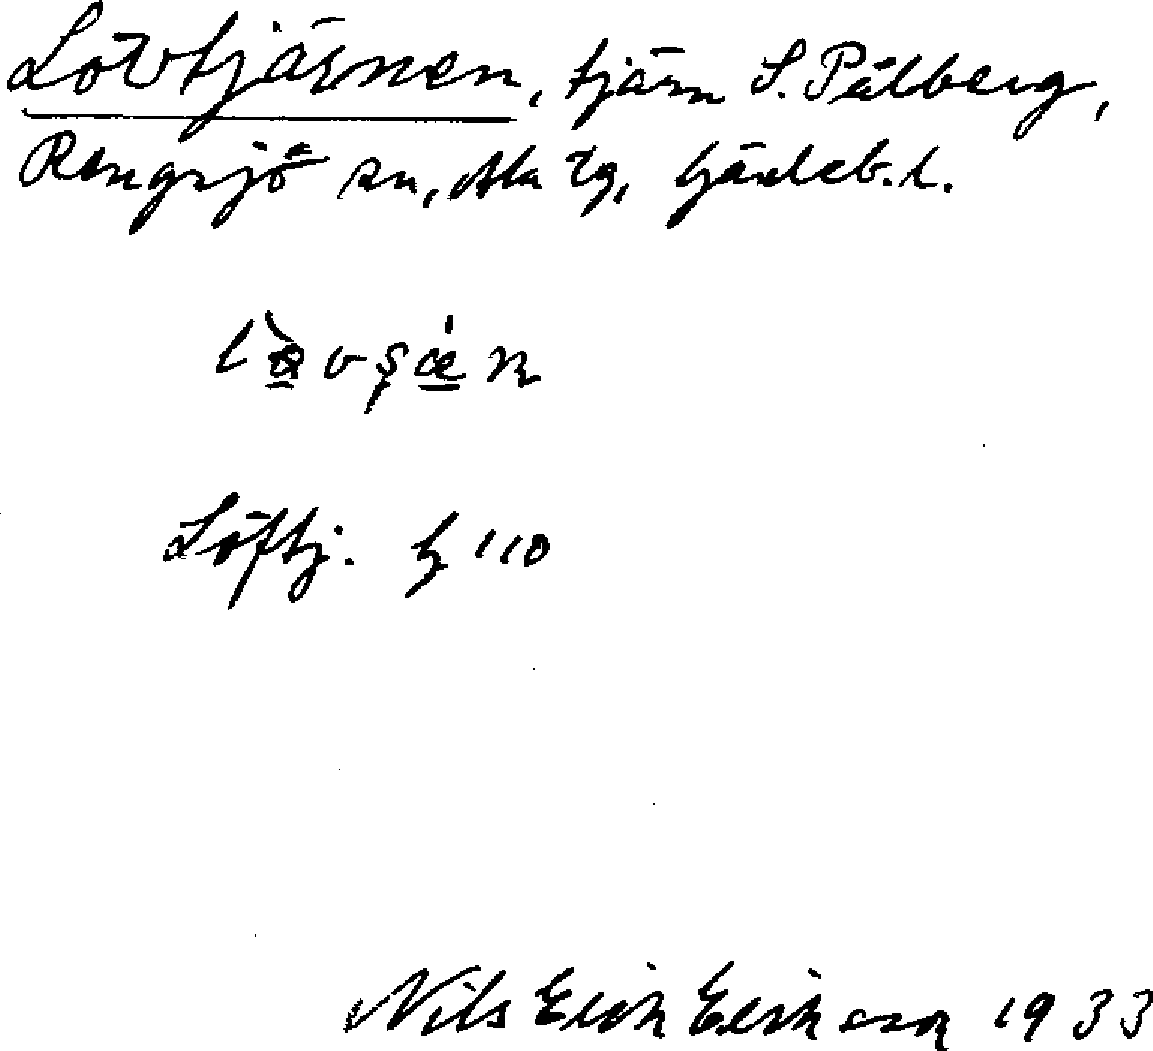 Lövtjärnen, tjärn S. Pålberg,
Rengsjö sn, Ala tg, Gävleb. l.
Löftj. h 110
Nils Erik Eriksson 1933